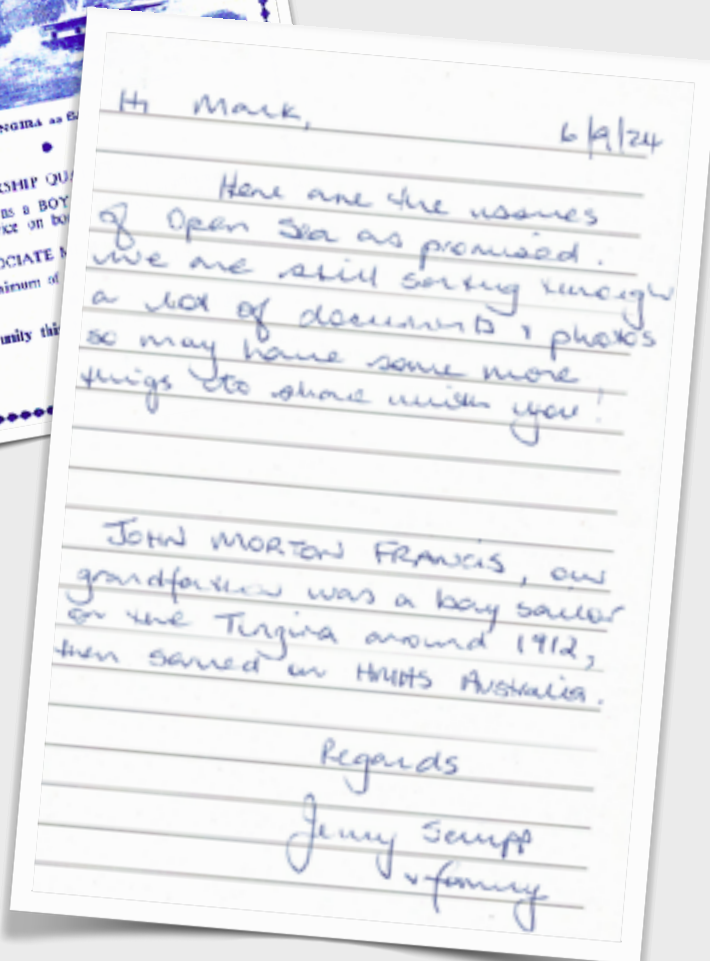 NGIRA as
RSHIP QU
as a BOY
ice on bo
OCIATE M
nimum of
unity this
Hi Mark,
6/9/24
Here are the issues
of Open Sea as promised.
We are still sorting through
a lot of documents & photos
so may have some more
things to share with you!
JOHN MORTON FRANCIS, our
grandfather was a boy sailor
on the Tingira around 1912,
then served on HMAS Australia.
Regards
Jenny
& family